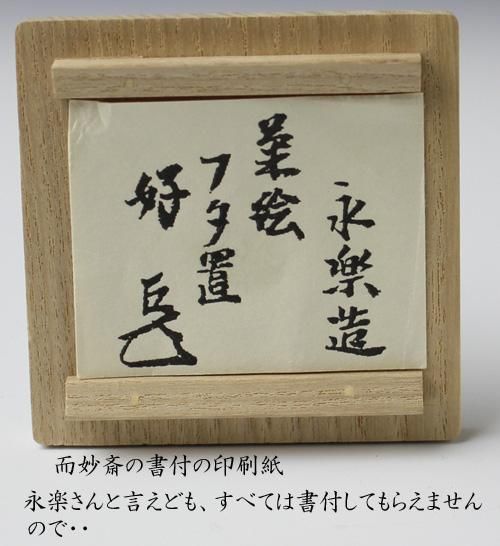 永楽造
菜絵
フタ置
好
而妙斎の書付の印刷紙
永楽さんと言えども、すべては書付してもらえません
ので・・